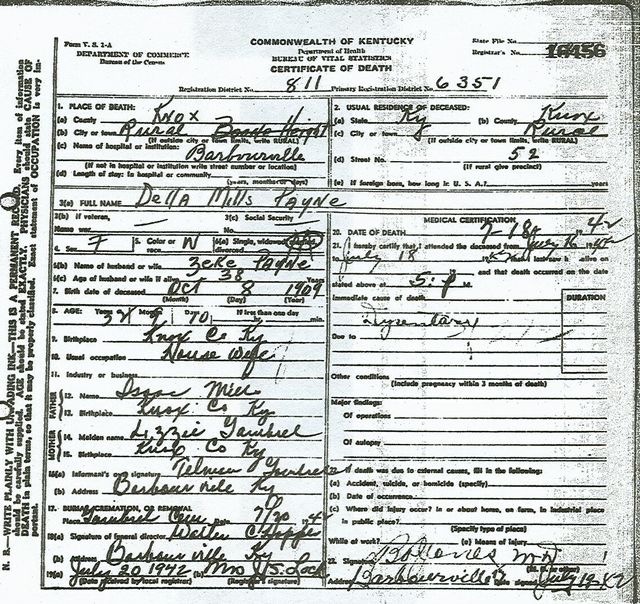 Form V. S. 1-A
DEPARTMENT OF COMMERCE
Bureau of the Census
COMMONWEALTH OF KENTUCKY
Department of Health
BUREAU OF VITAL STATISTICS
CERTIFICATE OF DEATH
State File No.
Registrar's No. 16456
Registration District No. 811 Primary Registration District No. 6351
N. B.—WRITE PLAINLY WITH UNFADING INK—THIS IS A PERMANENT RECORD. Every item of information
should be carefully supplied. AGE should be stated EXACTLY. PHYSICIANS should state CAUSE OF
DEATH in plain terms, so that it may be properly classified. Exact statement of OCCUPATION is very im-
portant.
1. PLACE OF DEATH:
(a) County Knox
(b) City or town Rural
(If outside city or town limits, write RURAL)
(c) Name of hospital or institution:
Barbourville
(If not in hospital or institution write street number or location)
(d) Length of stay: In hospital or community
(years, months or days)
2. USUAL RESIDENCE OF DECEASED:
(a) State Ky (b) County Knox
(c) City or town Rural
(If outside city or town limits, write RURAL)
(d) Street No. 52
(If rural give precinct)
(e) If foreign born, how long in U. S. A.? years
3(a) FULL NAME Della Mills Payne
3(b) If veteran,
Name war
3(c) Social Security
No.
4. Sex F 5. Color or race W 6(a) Single, widowed, married, divorced
6(b) Name of husband or wife Zeke Payne
6(c) Age of husband or wife if alive 38 Years
7. Birth date of deceased Oct 8 1909
(Month) (Day) (Year)
8. AGE: Years 32 Months 9 Days 10 If less than one day
hr. min.
9. Birthplace Knox Co Ky
10. Usual occupation House Wife
11. Industry or business
FATHER
12. Name Isaac Mills
13. Birthplace Knox Co Ky
MOTHER
14. Maiden name Lizzie Gambrel
15. Birthplace Knox Co Ky
16(a) Informant's own signature
(b) Address Barbourville Ky
17. BURIAL, CREMATION, OR REMOVAL
Place Gambrel Cem Date 7/20 1942
18(a) Signature of funeral director Walter
(b) Address Barbourville Ky
19(a) July 20 1942 (b) Mrs J S. Lock
(Date received by local registrar) (Registrar's signature)
MEDICAL CERTIFICATION
20. DATE OF DEATH 7-18 1942
21. I hereby certify that I attended the deceased from July 16 1942
to July 18 1942 that I last saw h alive on
and that death occurred on the date
stated above at 5: P M.
Immediate cause of death
Dysentary
DURATION
Due to
Other conditions
(Include pregnancy within 3 months of death)
Major findings:
Of operations
Of autopsy
22. If death was due to external causes, fill in the following:
(a) Accident, suicide, or homicide (specify)
(b) Date of occurrence
(c) Where did injury occur? in or about home, on farm, in industrial place
in public place?
(Specify type of place)
While at work? (e) Means of injury
23. Signature M D
(M. D. or other)
Address Barbourville Date signed July 19-42